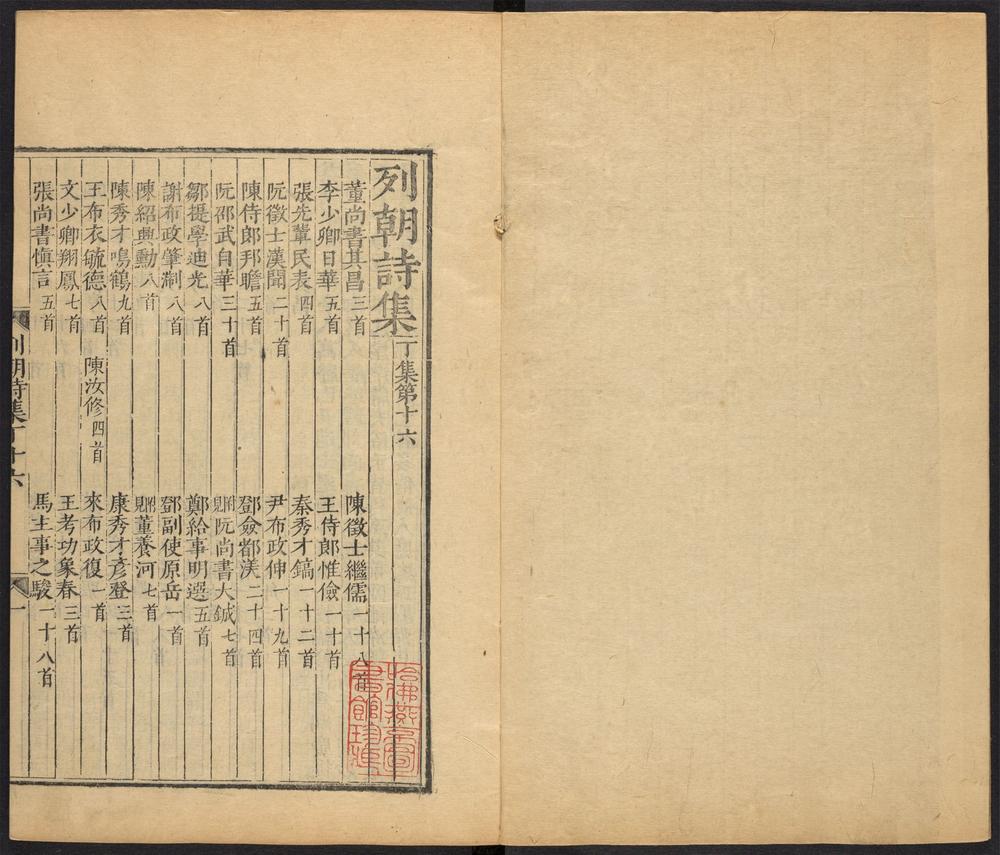 列朝詩集 丁集第十六
董尚書其昌三首 陳徵士繼儒一十八首
李少卿日華五首 王侍郎惟儉一十首
張先輩民表四首 秦秀才鎬一十二首
阮徵士漢聞二十首 尹布政伸一十九首
陳侍郎邦瞻五首 鄧僉都渼二十四首
阮邵武自華三十首 附見阮尚書大鋮七首
鄒提學迪光八首 鄭給事明選五首
謝布政肇淛八首 鄧副使原岳一首
陳紹興勳八首 附見董養河七首
陳秀才鳴鶴九首 康秀才彥登三首
王布衣毓德八首 陳汝修四首 來布政復一首
文少卿翔鳳七首 王考功象春三首
張尚書愼言五首 馬主事之駿一十八首
列朝詩集丁十六 一
哈佛燕京圖
書館珍藏